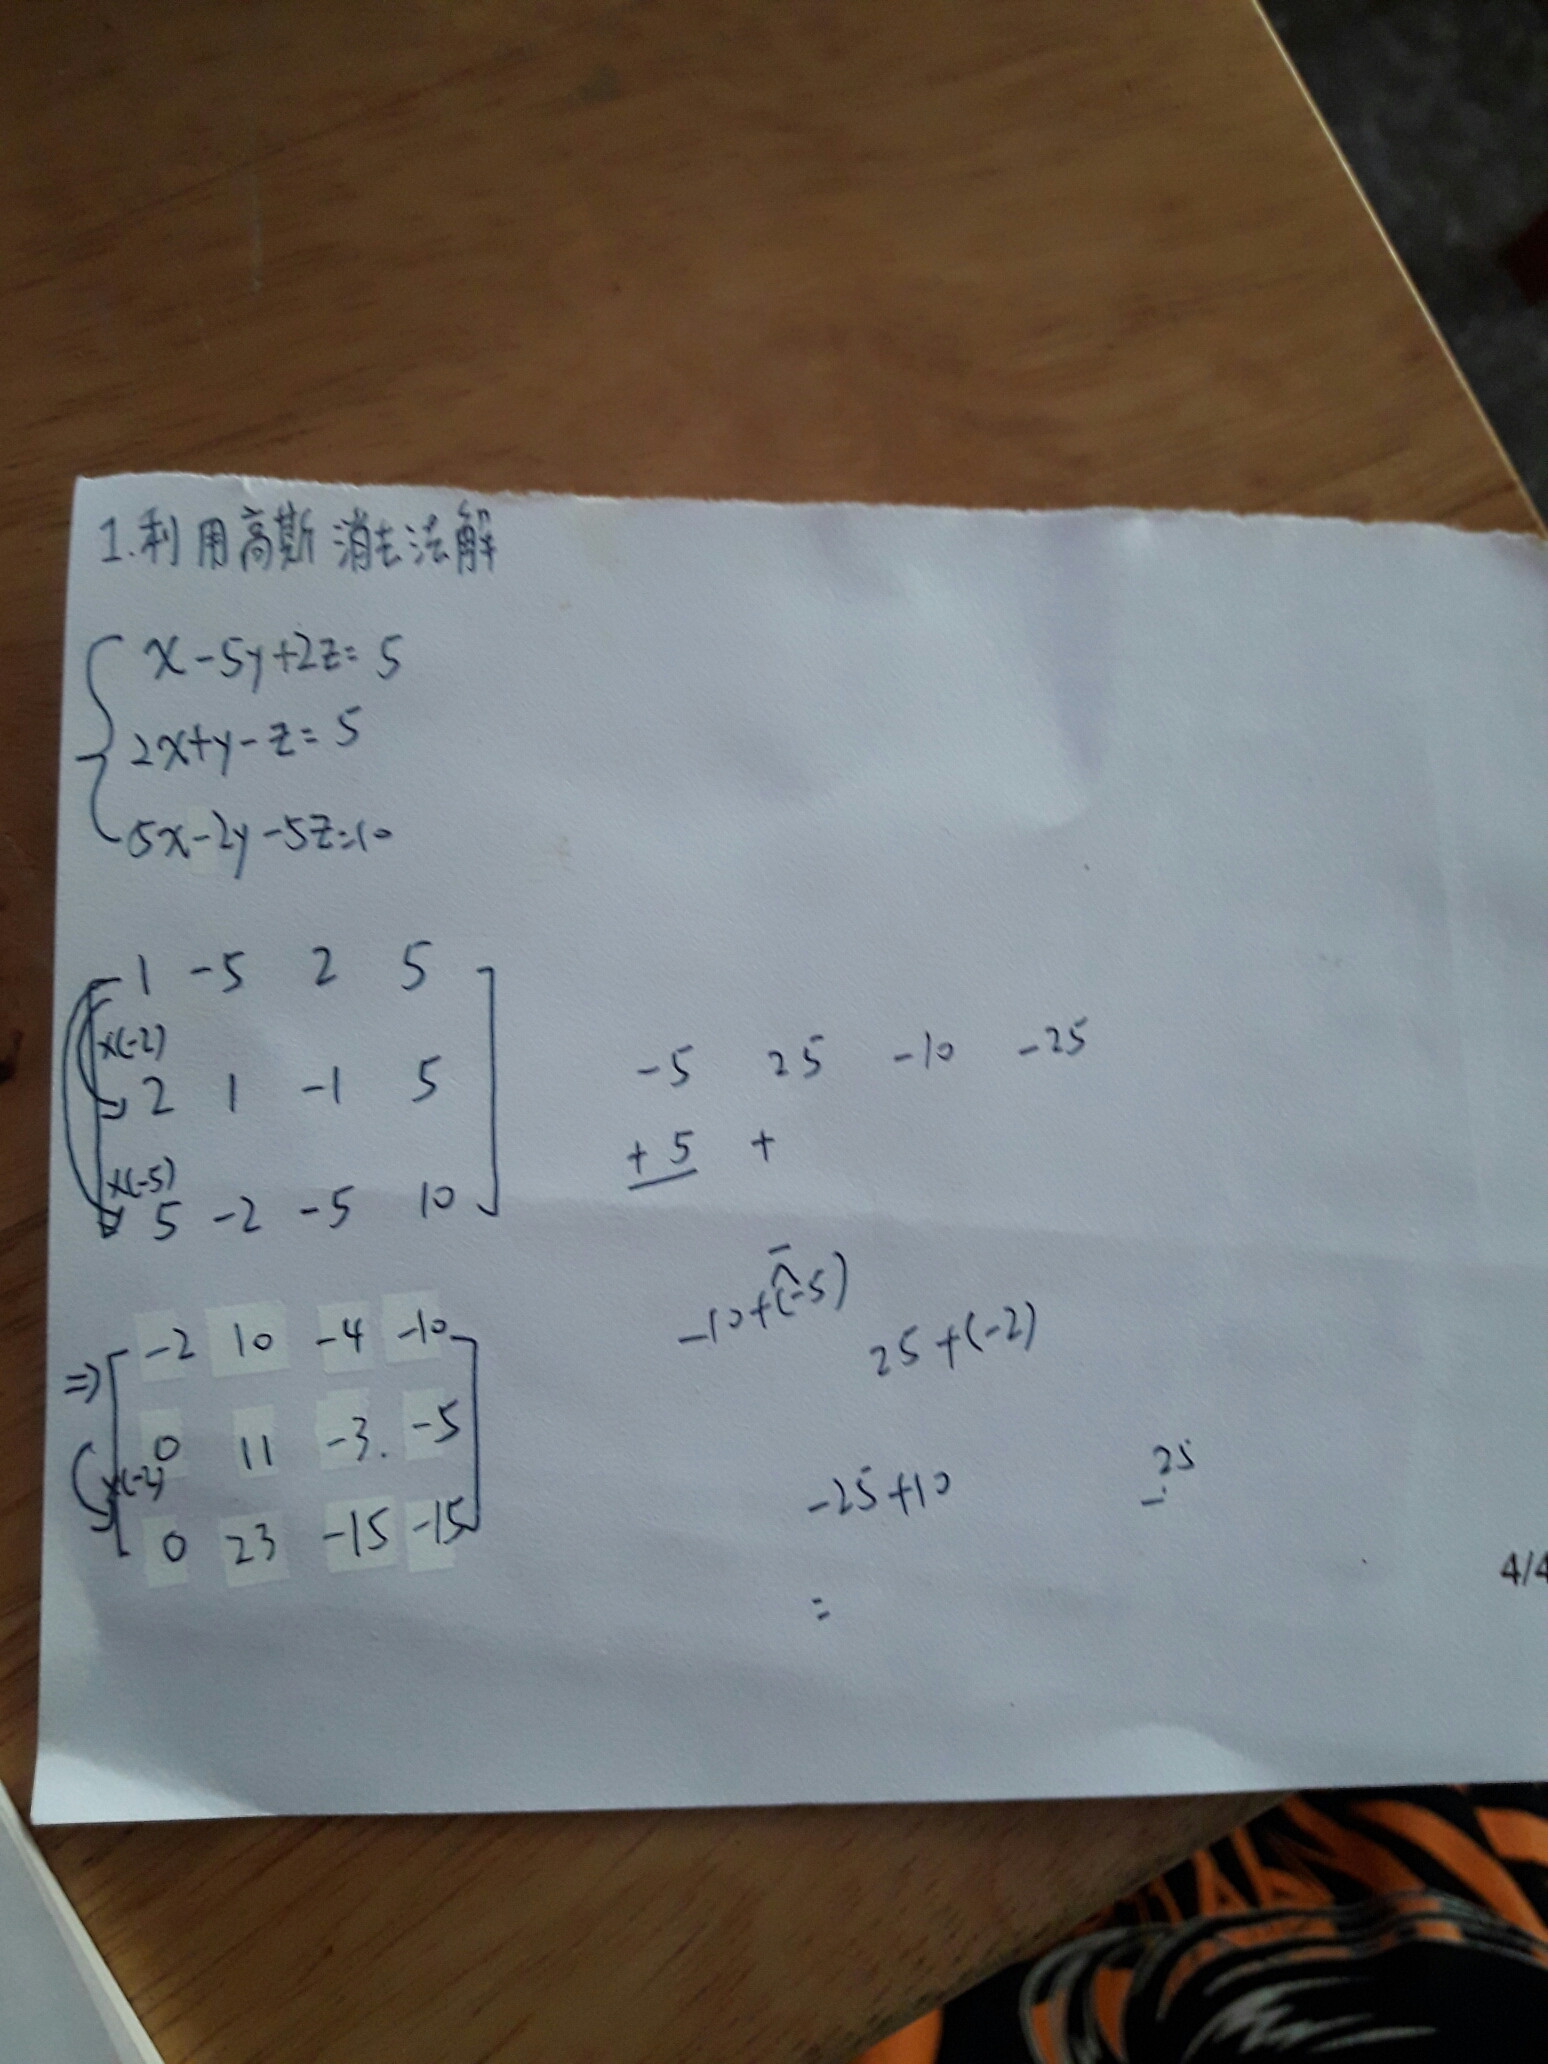 1.利用高斯消去法解
x-5y+2z=5
2x+y-z=5
5x-2y-5z=10
1 -5 2 5
x(-2)
2 1 -1 5
x(-5)
5 -2 -5 10
-5 25 -10 -25
+5 +
⇒ -2 10 -4 -10
0 11 -3. -5
x(-2)
0 23 -15 -15
-10+(-5)
25+(-2)
-25+10
=
25
-
4/4